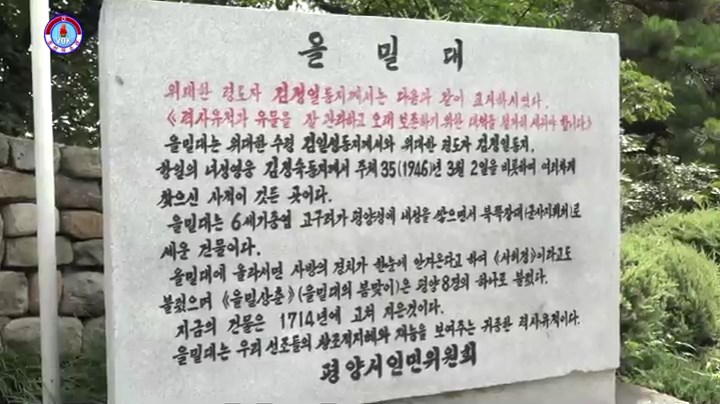 을 밀 대
위대한 령도자 김정일동지께서는 다음과 같이 교시하시였다.
《력사유적과 유물을 잘 관리하고 오래 보존하기 위한 대책을 철저히 세워야 합니다.》
을밀대는 위대한 수령 김일성동지께서와 위대한 령도자 김정일동지,
항일의 녀성영웅 김정숙동지께서 주체35(1946)년 3월 2일을 비롯하여 여러차례
찾으신 사적이 깃든 곳이다.
을밀대는 6세기중엽 고구려가 평양성에 내성을 쌓으면서 북쪽장대(군사지휘처)로
세운 건물이다.
을밀대에 올라서면 사방의 경치가 한눈에 안겨온다고 하여 《사허정》이라고도
불렀으며 《을밀상춘》(을밀대의 봄맞이)은 평양8경의 하나로 불렀다.
지금의 건물은 1714년에 고쳐 지은것이다.
을밀대는 우리 선조들의 창조적지혜와 재능을 보여주는 귀중한 력사유적이다.
평양시인민위원회